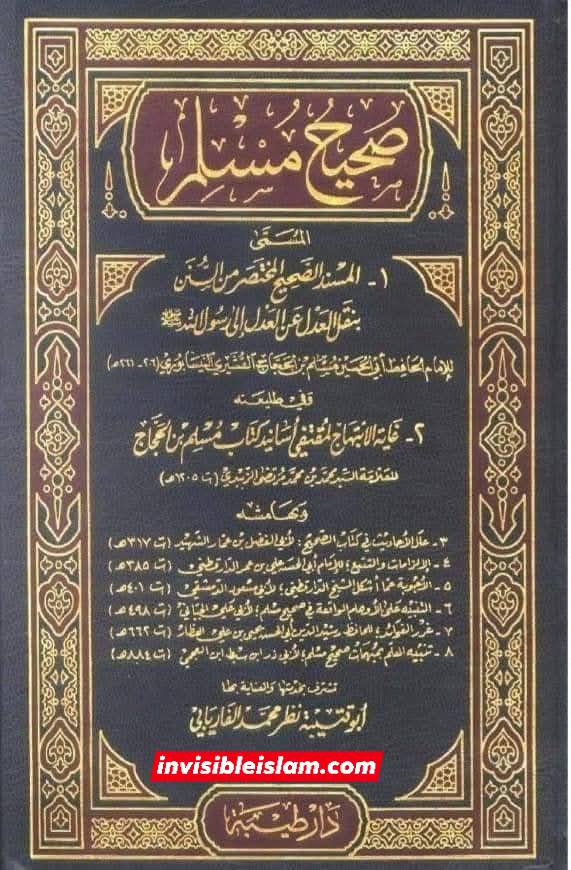 صَحِيحُ مُسْلِم
المُسَمَّى
١- المسند الصَّحيح المختصر من السُّنن
بنقل العدل عن العدل إلى رسول الله ﷺ
للإمام الحافظ أبي الحسين مسلم بن الحجاج القشيري النيسابوري (٢٠٦-٢٦١هـ)
وفي طليعته
٢- غاية الابتهاج لمقتفي أسانيد كتاب مسلم بن الحجاج
للعلامة السيد محمد بن محمد مرتضى الزبيدي (ت ١٢٠٥هـ)
وبهامشه
٣- علل الأحاديث في كتاب الصحيح؛ لأبي الفضل بن عمار الشهيد (ت ٣١٧هـ)
٤- الإلزامات والتتبع؛ للإمام أبي الحسن علي بن عمر الدارقطني (ت ٣٨٥هـ)
٥- الأجوبة عما أشكل الشيخ الدارقطني؛ لأبي مسعود الدمشقي (ت ٤٠١هـ)
٦- التنبيه على الأوهام الواقعة في صحيح مسلم؛ لأبي علي الجياني (ت ٤٩٨هـ)
٧- غرر الفوائد؛ للحافظ رشيد الدين أبي الحسين يحيى بن علي العطار (ت ٦٦٢هـ)
٨- تنبيه المعلم بمبهمات صحيح مسلم؛ لأبي ذر ابن سبط ابن العجمي (ت ٨٨٤هـ)
تشرف بخدمتها والعناية بها
أبو قتيبة نظر محمد الفاريابي
invisibleislam.com
دار طيبة